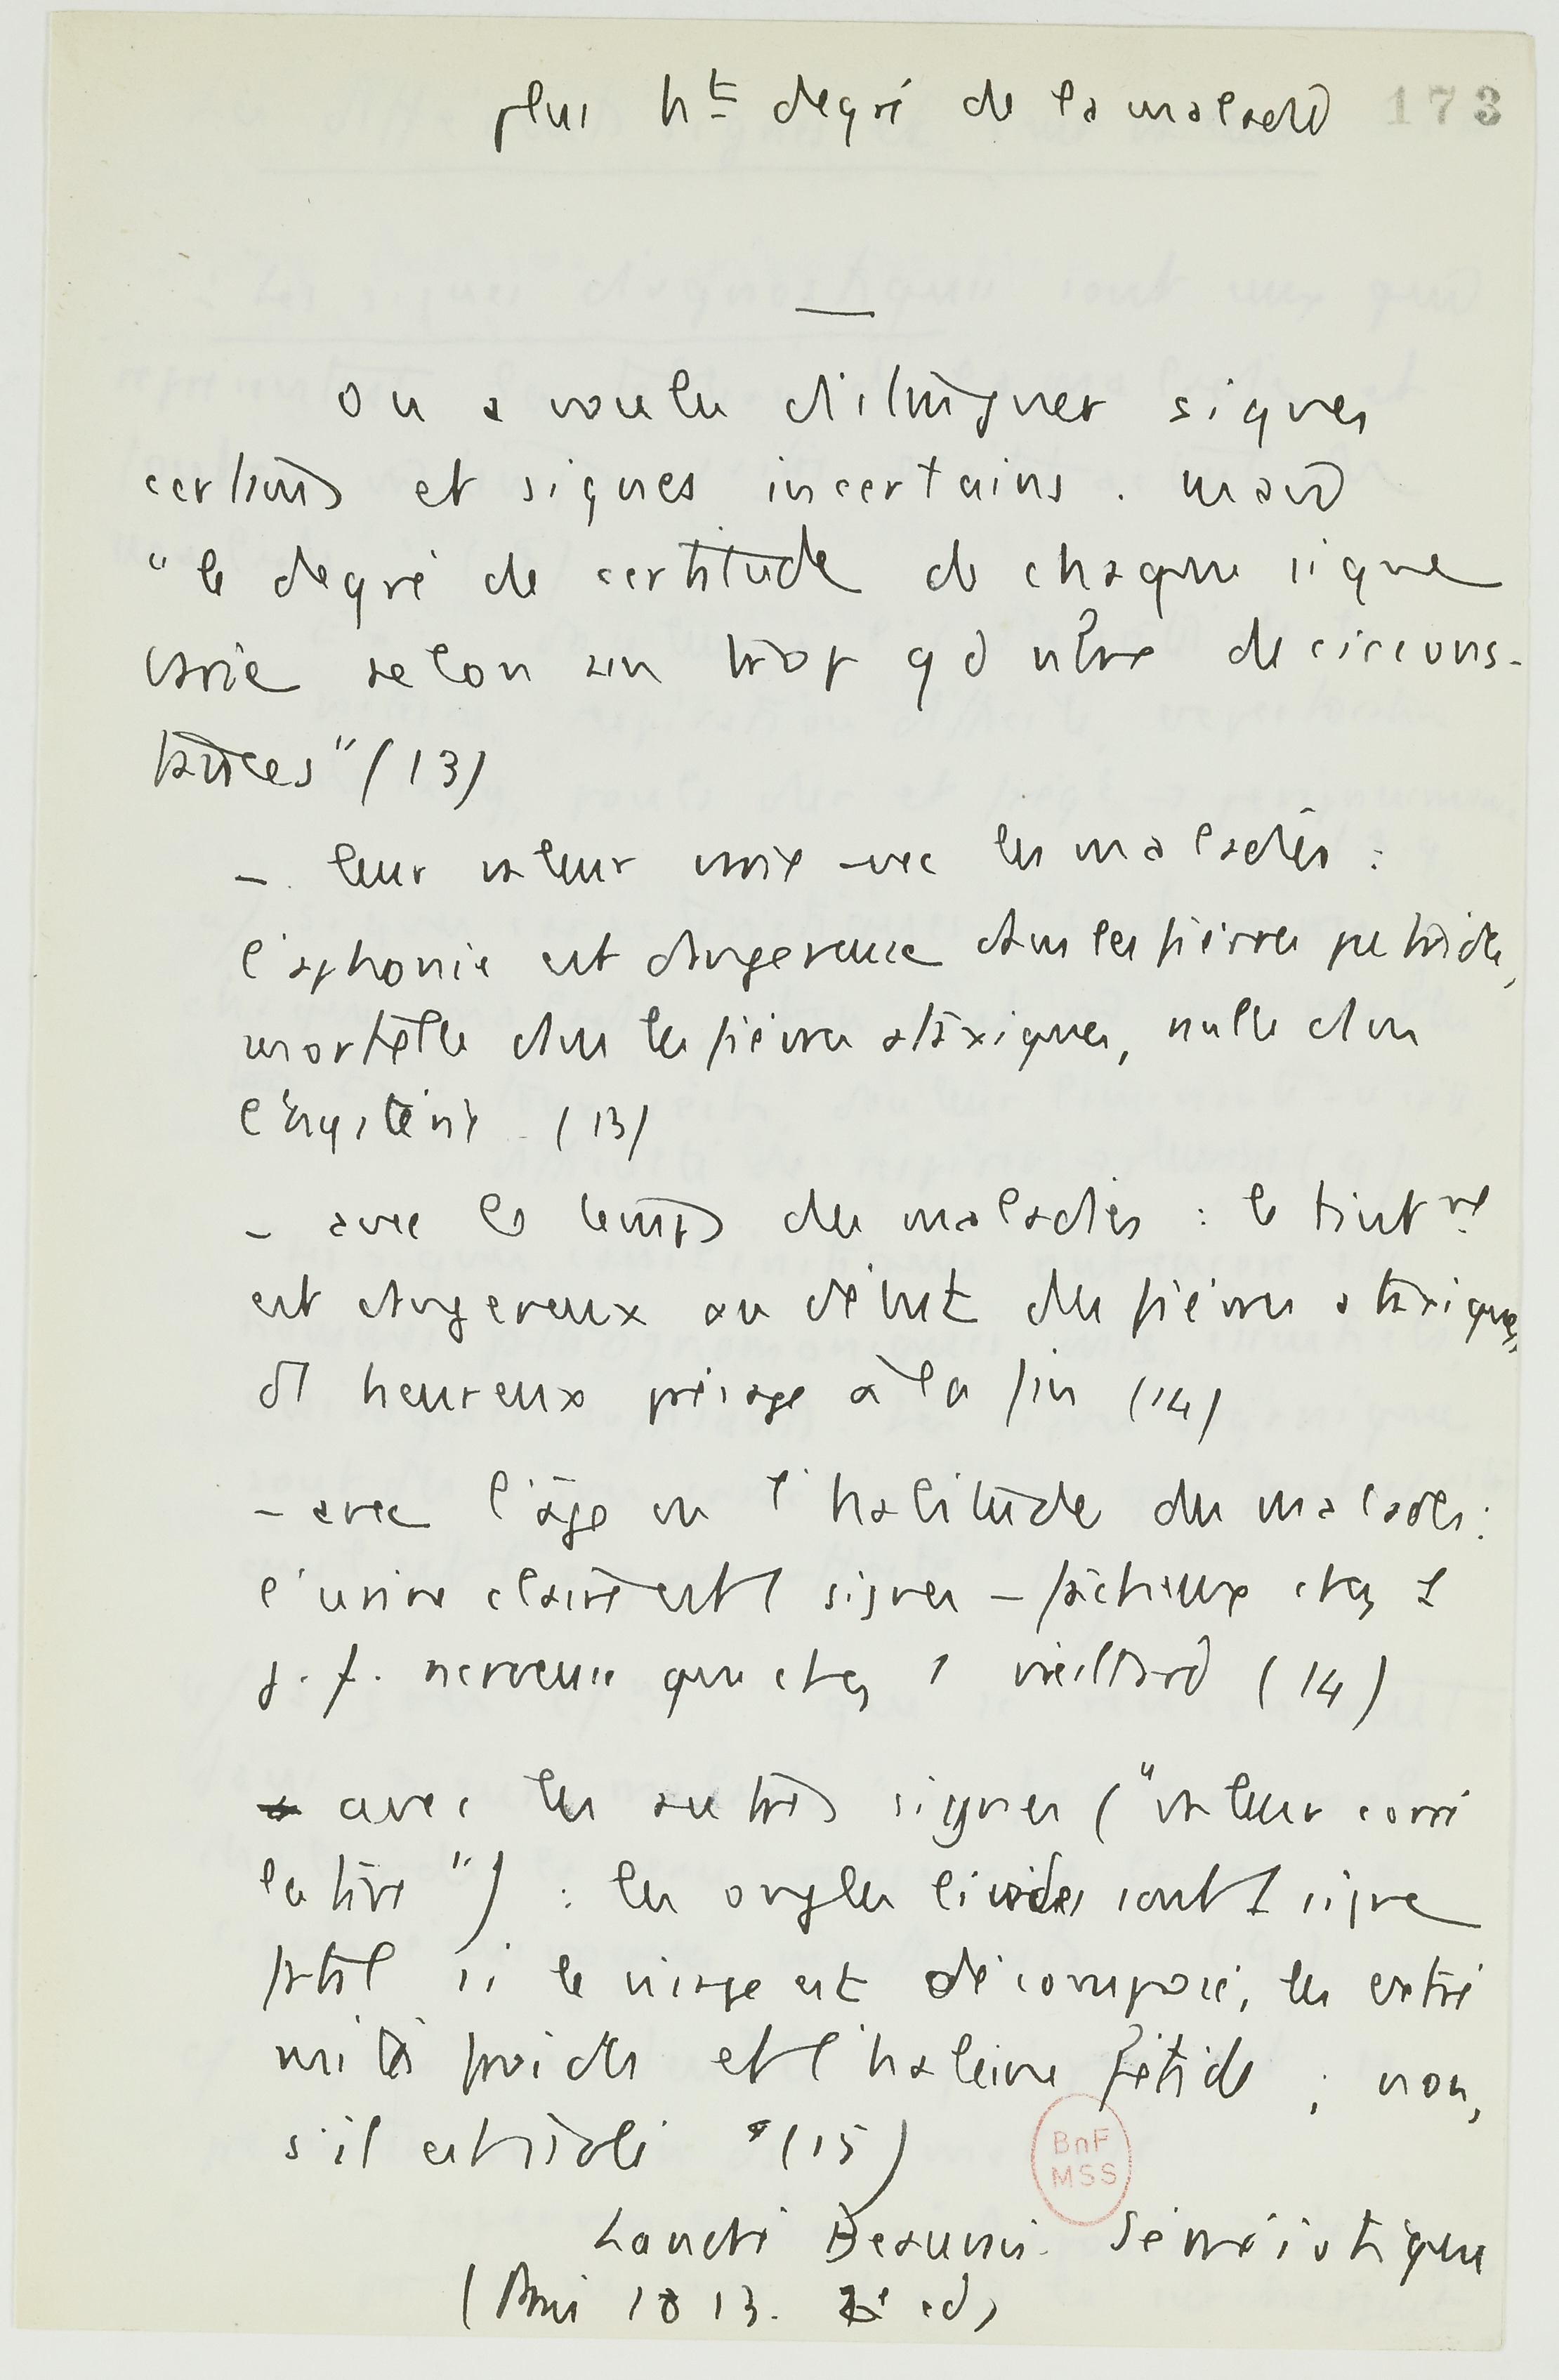 plus ht degré de la maladie 173
On a voulu distinguer signes
certains et signes incertains. Mais
"le degré de certitude de chaque signe
varie selon un trop gd nbre de circons-
tances" (13)
- leur valeur varie avec les maladies :
l'aphonie est dangereuse dans les fièvres putrides,
mortelle dans les fièvres ataxiques, nulle dans
l'hystérie (13)
- avec le temps des maladies : le tintnt
est dangereux au début des fièvres ataxiques,
d'1 heureux présage à la fin (14)
- avec l'âge ou l'habitude des malades :
l'urine claire est 1 signe - fâcheux chez 1
j. f. nerveuse que chez 1 vieillard (14)
avec les autres signes ("valeur corré
lative") : les ongles livides sont 1 signe
fatal si le visage est décomposé, les extré
mités froides et l'haleine fétide ; non,
s'il est isolé (15)
Landré Beauvais. Séméiotique
(Paris 1813. 2e ed)
BnF
MSS